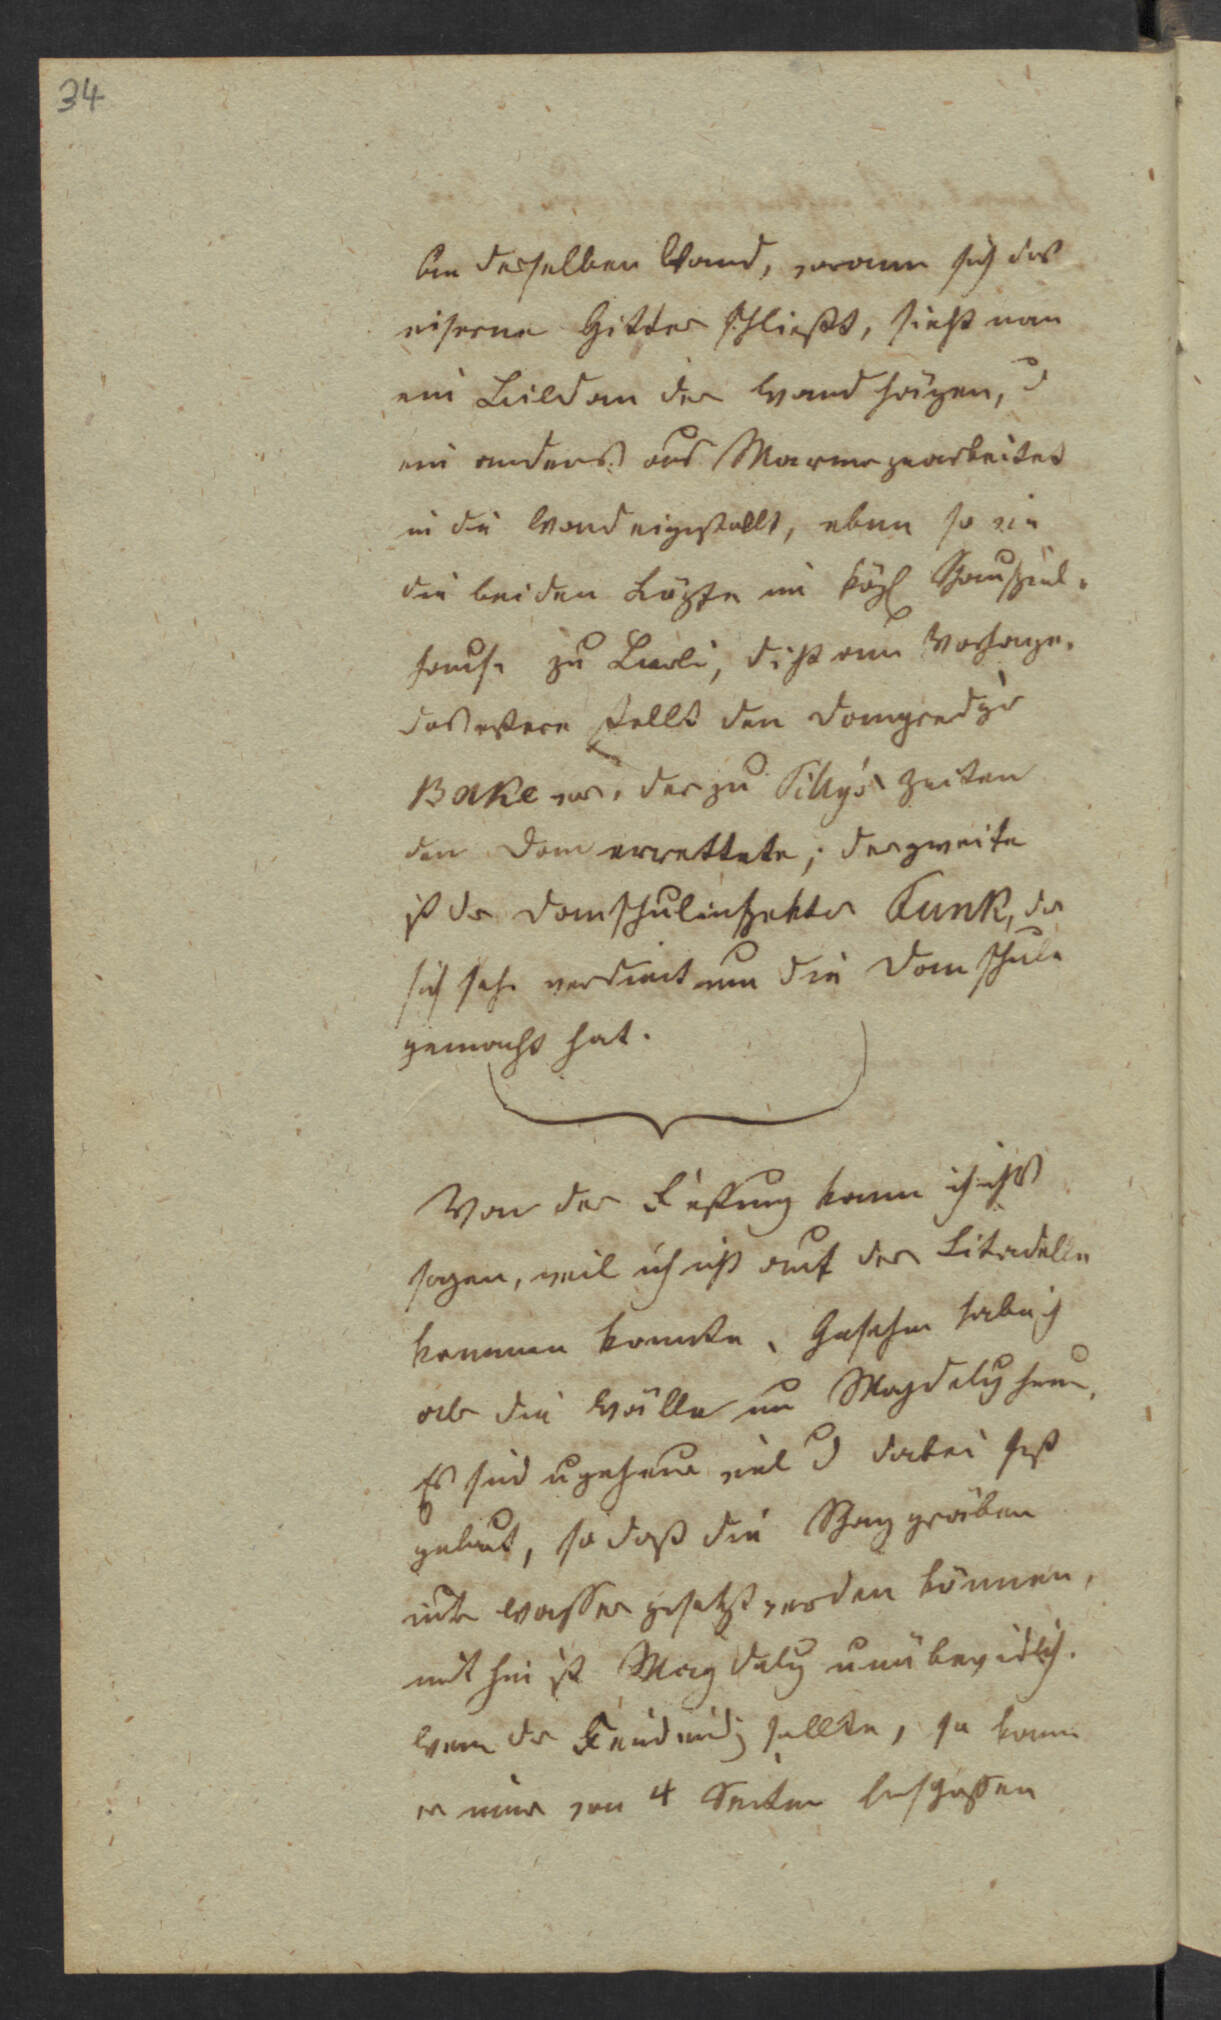 34
An derselben Wand, woran sich das
eiserne Gitter schließt, sieht man
ein Bild an der Wand hängen, u
ein anders aus Marmor gearbeitet
in die Wand eigestellt, eben so wie
die beiden Köpfe im kögl Schauspiel-
hause zu Berli, dicht am Vorhange.
das erstere stellt den Dompredger
Bake vor, der zu Tilly's Zeiten
den Dom errettete; der zweite
ist der Domschulinspektor Funk, der
sich sehr verdient um die Domschule
gemacht hat.
Von der Festung kann ich ichts
sagen, weil ich icht auf der Citadelle
kommen konnte. Gesehen habe ich
aber die Wälle um Magdebg herum,
Es sind ugeheuer viel u dabei fest
gebaut, so daß die Schanzgräben
unter Wasser gesetzt werden können,
mithin ist Magdebg unüberwidlich.
Wenn der Feind eindrig sollte, so kann
er nur von 4 Seiten beschossen